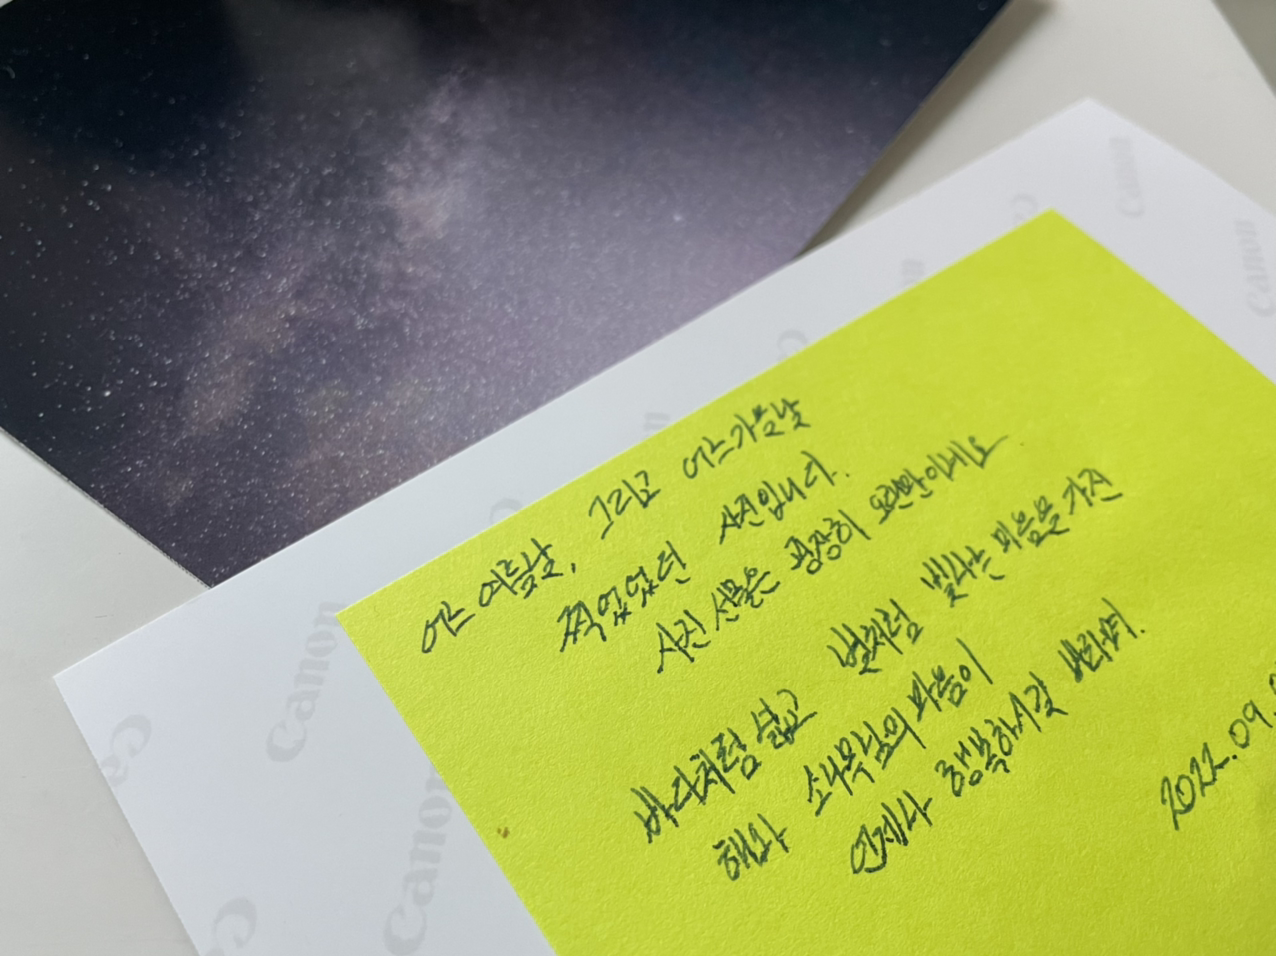 어느 여름날, 그리고 어느가을날
찍었었던 사진입니다.
사진 선물은 굉장히 오랜만이네요
바다처럼 넓고 별처럼 빛나는 마음을 가진
해와 소나무님의 마음이
언제나 행복하시길 바라며.
2022.09.
Canon
Canon
Canon
Canon